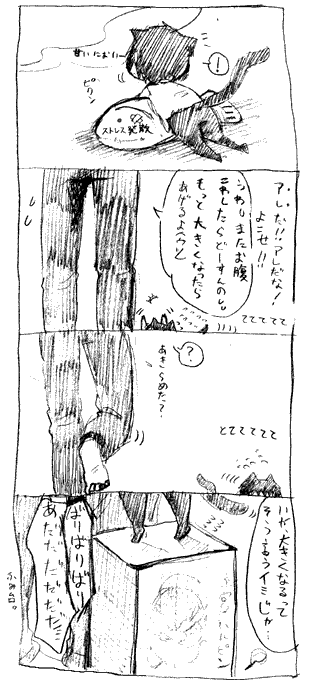 甘いにおい
ピクン
！
ストレス発散
アレだ!!アレだな！
よこせ!!!
またお腹
こわしたらどーすんの。
もっと大きくなったら
あげるよ
ててててて
？
あきらめた？
とてててて
いや、大きくなるって
そうゆうイミじゃ…
ばりばりばり
あだだだだだ…
カルピン